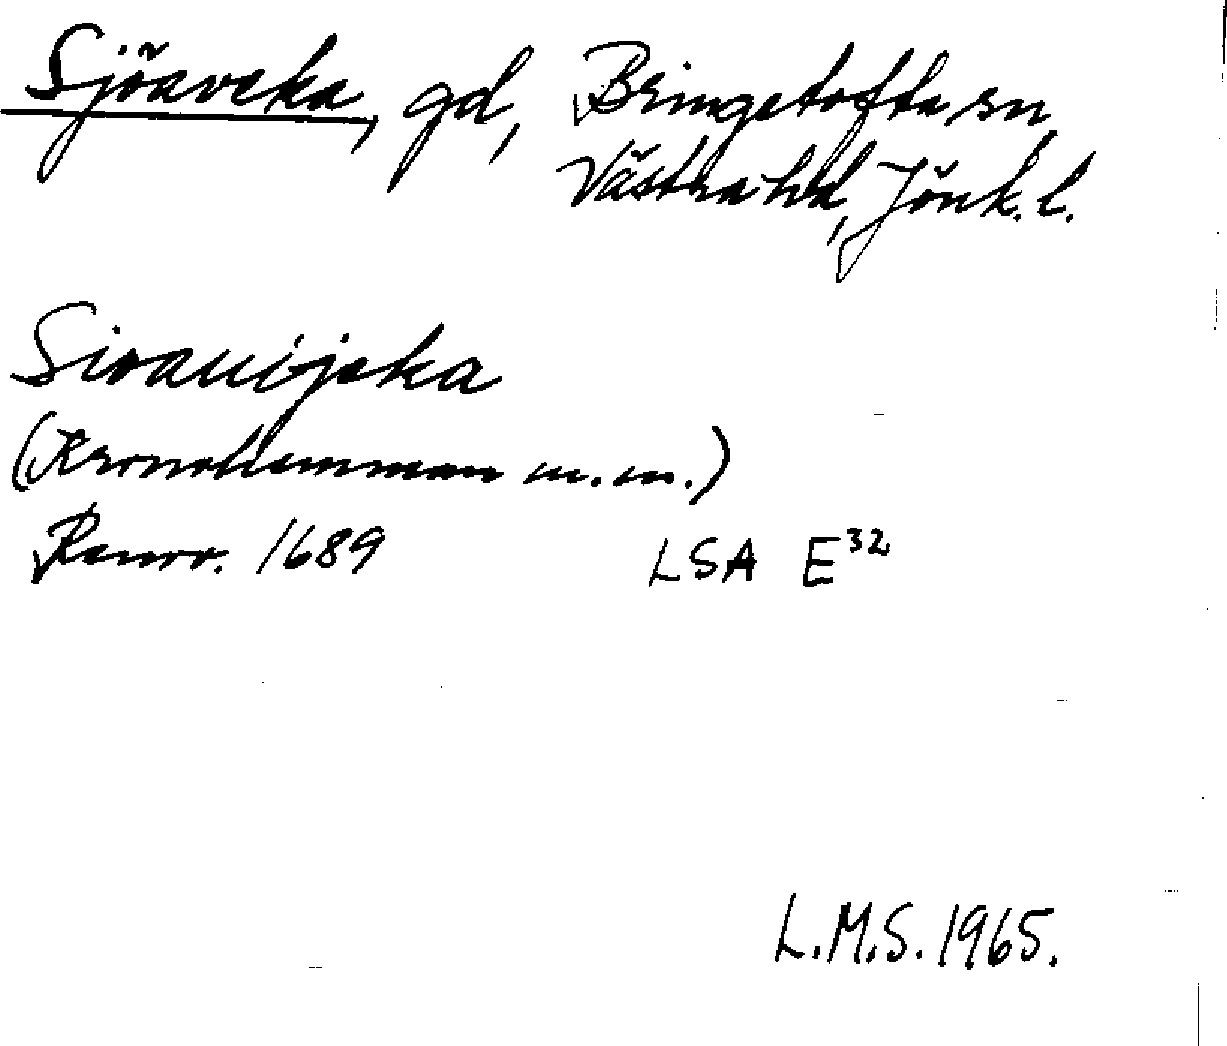 Sjöaveka, gd, Bringetofta sn,
Västra hd, Jönk. l.
Sioauijeka
(Kronohemman m.m.)
Renov. 1689 LSA E32
L.M.S. 1965.